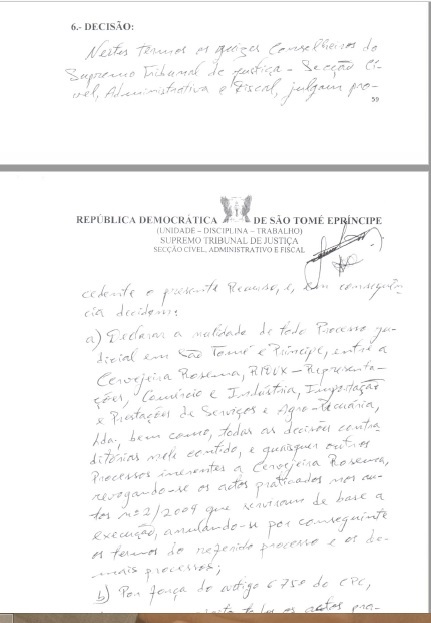 6.- DECISÃO:
Nestes termos os Juizes Conselheiros do
Supremo Tribunal de Justiça - Secção Cí-
vel, Administrativa e Fiscal, julgam pro-
59
REPÚBLICA DEMOCRÁTICA DE SÃO TOMÉ EPRÍNCIPE
(UNIDADE – DISCIPLINA – TRABALHO)
SUPREMO TRIBUNAL DE JUSTIÇA
SECÇÃO CIVEL, ADMINISTRATIVO E FISCAL
cedente o presente Recurso, e, em consequên
cia decidem:
a) Declarar a nulidade de todo Processo ju-
dicial em São Tomé e Príncipe, entre a
Cervejeira Rosema, RIDUX - Representa-
ções, Comércio e Indústria, Importação
e Prestações de Serviços e Agro-Pecuária,
Lda, bem como, todas as decisões contra
ditórias nele contido, e quaisquer outros
Processos inerentes a Cervejeira Rosema,
revogando-se os actos praticados nos au-
tos nº 2/2009 que serviram de base a
execução, anulando-se por conseguinte
os termos do referido processo e os de-
mais processos;
b) Por força do artigo 675º do CPC,
todos os actos pra-